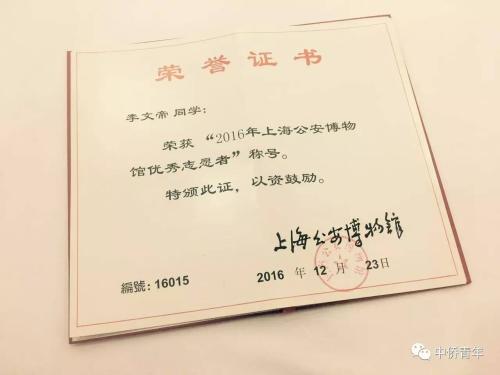 荣誉证书
李文帝 同学：
荣获“2016年上海公安博物
馆优秀志愿者”称号。
特颁此证，以资鼓励。
上海公安博物館
2016 年 12 月 23日
編號：16015
中侨青年